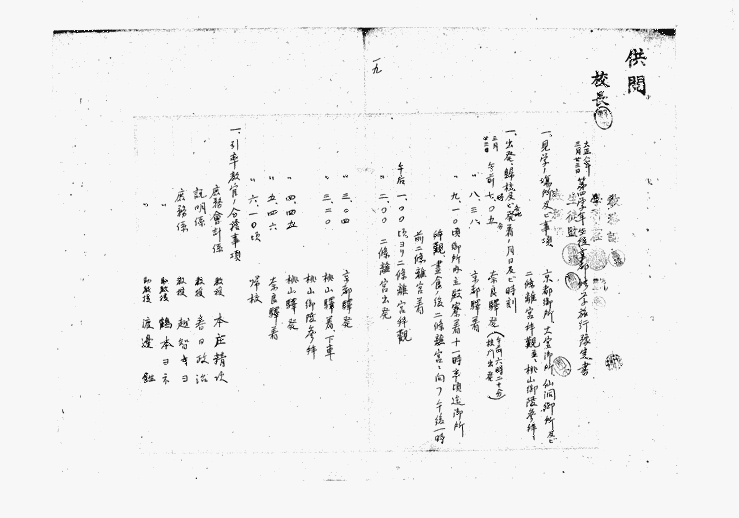 供閲
校長
大正八年
三月廿三日
第四学年生徒京都修学旅行予定書
一、見学ノ場所及ビ事項 京都御所 大宮御所 仙洞御所 及ビ
二條離宮拝観並ニ桃山御陵参拝
一、出発、帰校及ビ発着ノ月日及ビ時刻
三月
廿三日 午前 七、〇五 奈良驛発(午前六時二十分
校門出発)
〃 八、三八 京都驛着
〃 九、一〇頃 御所内主殿寮着 十一時半頃迄御所
拝観、昼食ノ後 二條離宮ニ向フ 午後一時
前二條離宮着
午后 一、〇〇頃ヨリ二條離宮拝観
〃 二、〇〇 二條離宮出発
〃 三、〇四 京都驛発
〃 三、二〇 桃山驛着、下車
桃山御陵参拝
〃 四、四五 桃山驛発
〃 五、四六 奈良驛着
〃 六、一〇頃 帰校
一、引率教官ノ分擔事項
庶務會計係 教授 本庄精次
説明係 教授 春日政治
庶務係 教授 越智キヨ
〃 助教授 鶴本ヨネ
〃 助教授 渡邊
一九